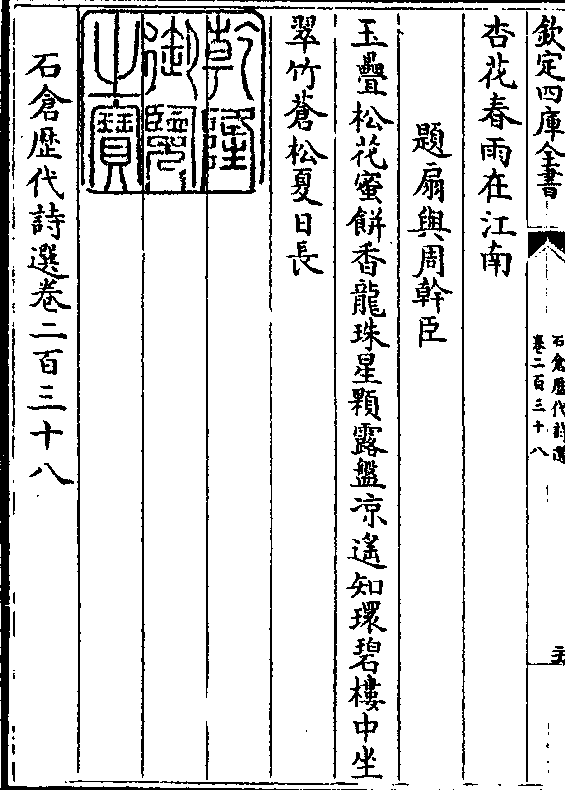 欽定四庫全書
石倉歷代詩選
卷二百三十八
杏花春雨在江南
題扇與周幹臣
玉疊松花蜜餅香龍珠星顆露盤凉遙知環碧樓中坐
翠竹蒼松夏日長
乾隆
御覽
之寶
石倉歷代詩選卷二百三十八